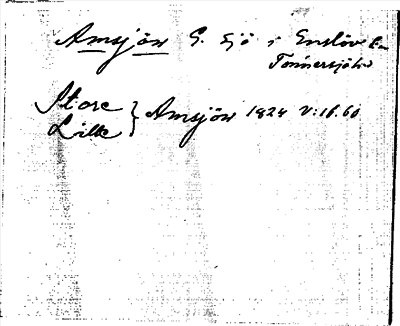 Amsjön G. sjö i Enslöv sn
Tönnersjö hd
Store
Lille } Amsjön 1824 V:16.60